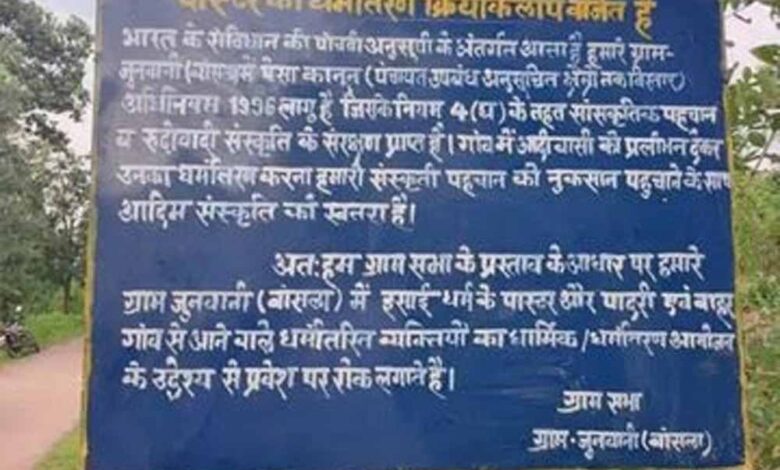 पास्टर का धर्मांतरण क्रियाकलाप वर्जित है
भारत के संविधान की पांचवी अनुसूची के अंतर्गत आता है हमारे ग्राम-
जुनवानी (बांसला) में पेसा कानून (पंचायत उपबंध अनुसूचित क्षेत्रों तक विस्तार)
अधिनियम 1996 लागू है जिसके नियम 4 (घ) के तहत सांस्कृतिक पहचान
व रुढीवादी संस्कृति के संरक्षण प्राप्त है। गांव में आदीवासी को प्रलोभन देकर
उनका धर्मांतरण करना हमारी संस्कृती पहचान को नुकसान पहुचाने के साथ
आदिम संस्कृति को खतरा है।
अतः हम ग्राम सभा के प्रस्ताव के आधार पर हमारे
ग्राम जुनवानी (बांसला) में इसाई धर्म के पास्टर और पादरी एवं बाहर
गांव से आने वाले धर्मांतरित व्यक्तियों का धार्मिक / धर्मांतरण आयोजन
के उद्देश्य से प्रवेश पर रोक लगाते है।
ग्राम सभा
ग्राम - जुनवानी (बांसला)